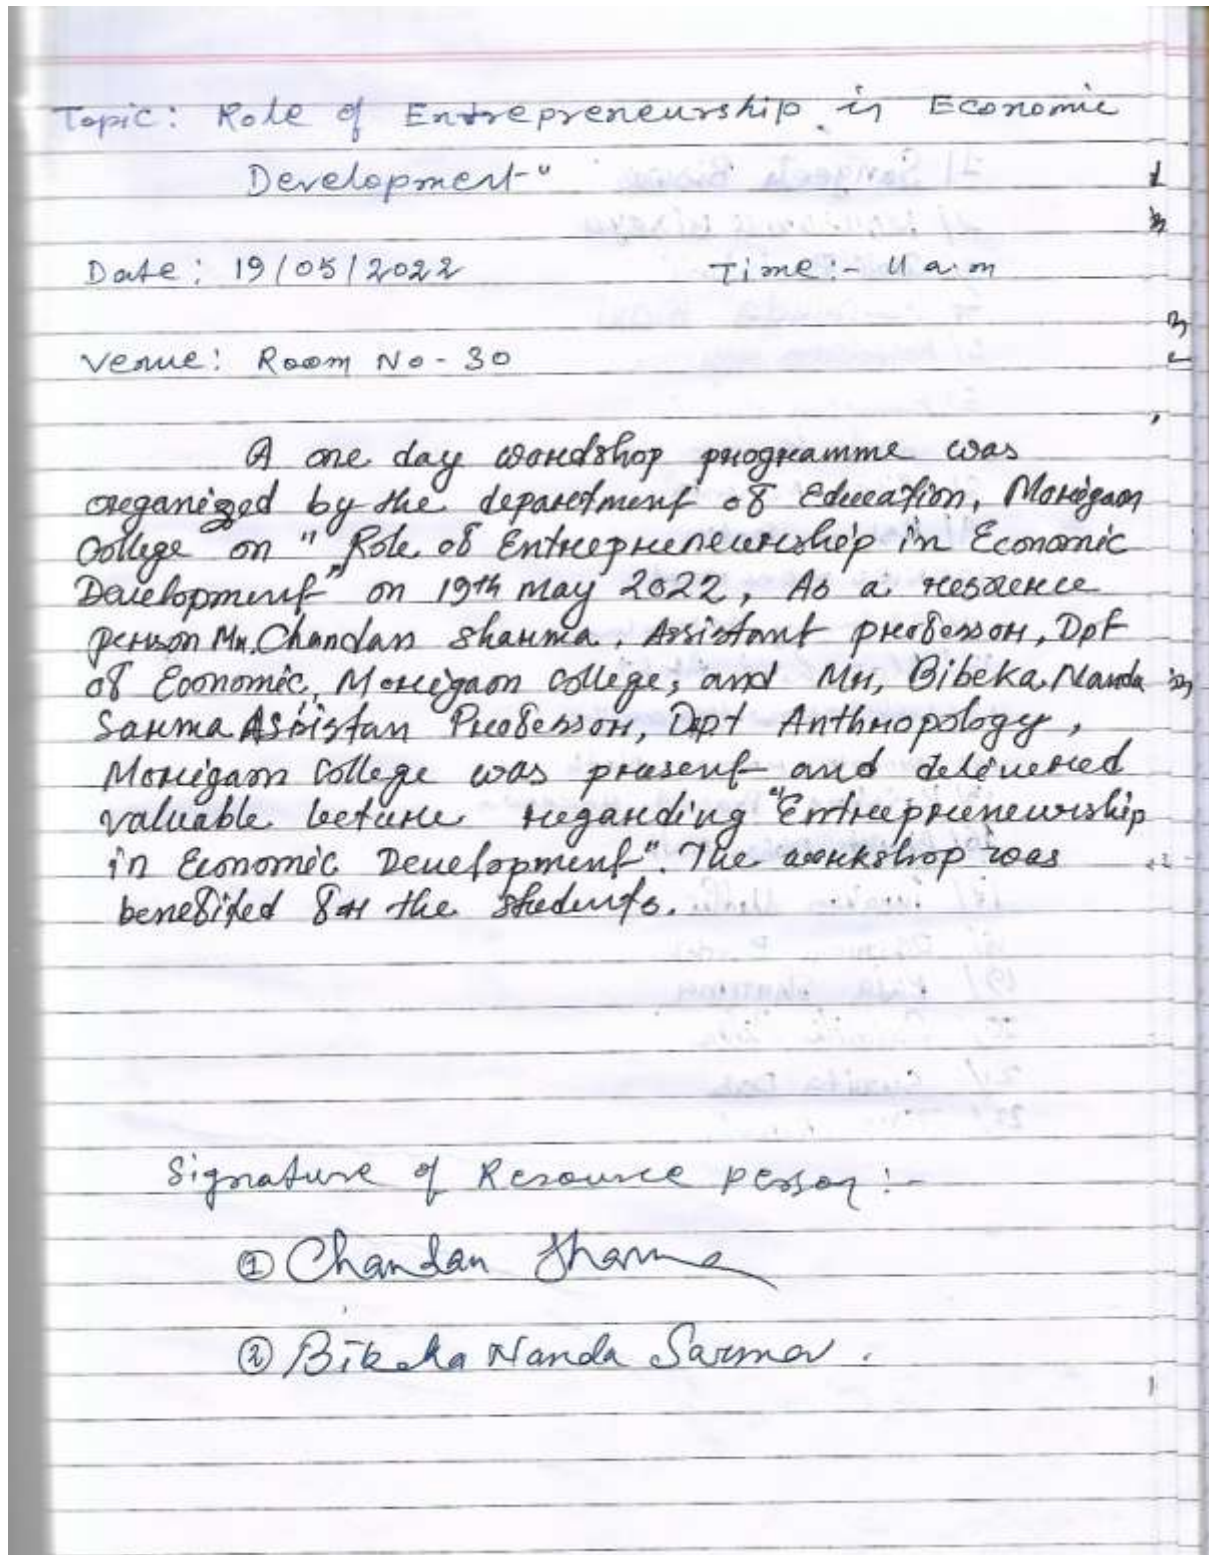 Topic: Role of Entrepreneurship in Economic
Development"
Date: 19/05/2022 Time:- 11 a.m
Venue: Room No - 30
A one day workshop programme was
organized by the department of Education, Morigaon
College on "Role of Entrepreneurship in Economic
Development" on 19th May 2022, As a resource
person Mr. Chandan Sharma. Assistant professor, Dpt
of Economic, Morigaon College, and Mr, Bibeka Nanda
Sarma Assistan Professor, Dept Anthropology,
Morigaon College was present and delivered
valuable lecture regarding "Entrepreneurship
in Economic Development". The workshop was
benefited for the students.
Signature of Resource Person:-
① Chandan Sharma
② Bibeka Nanda Sarma.